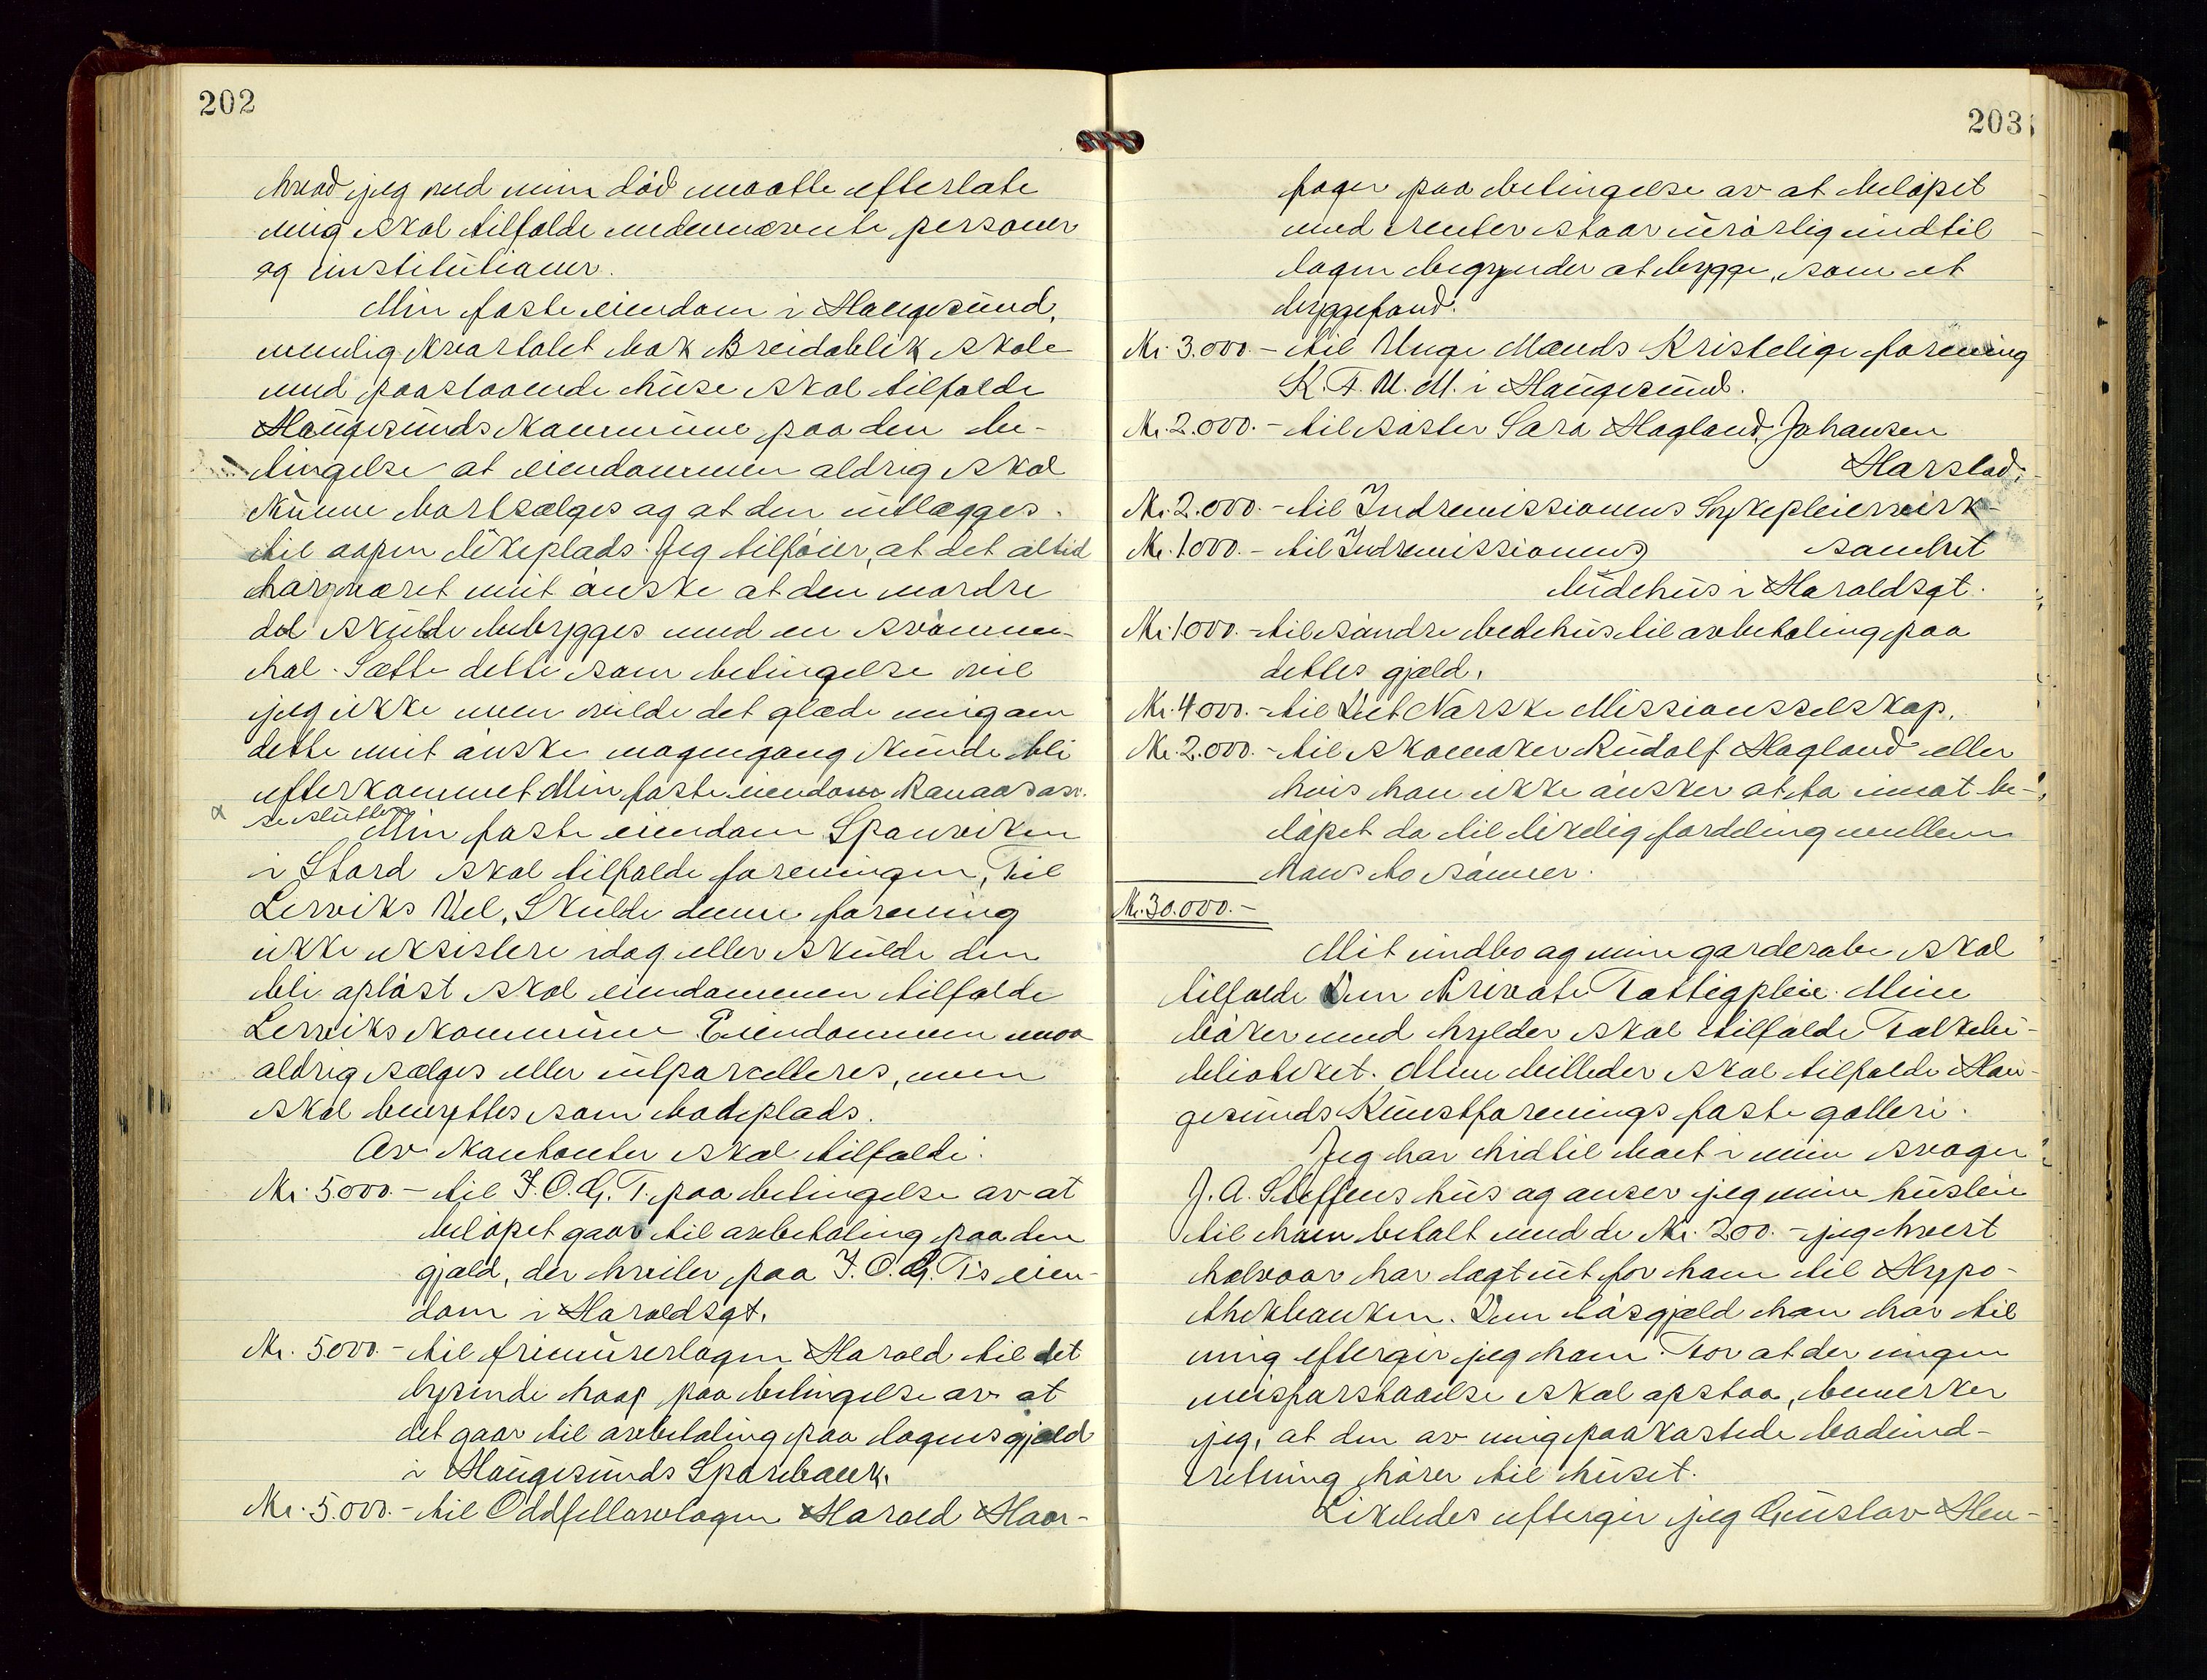 202
hvad jeg ved min død maatte efterlate
mig skal tilfalde nedennævnte personer
og institutioner.
Min faste eiendom i Haugesund,
nemlig kvartalet bak Breidablik skole
med paastaaende huse skal tilfalde
Haugesunds kommune paa den be-
tingelse at eiendommen aldrig skal
kunne bortsælges og at den utlægges
til aapen lekeplads. Jeg tilføier, at det altid
har været mit ønske at den nordre
del skulde bebygges med en svømme-
hal. Sætte dette som betingelse vil
jeg ikke men vilde det glæde mig om
dette mit ønske nogengang kunde bli
efterkommet. Min faste eiendom
se slutten
Min faste eiendom Spanviken
i Stord skal tilfalde foreningen, Til
Lerviks Vel, Skulde denne forening
ikke eksistere idag eller skulde den
bli opløst skal eiendommen tilfalde
Lerviks kommune Eiendommen maa
aldrig sælges eller utparcelleres, men
skal benyttes som badeplads.
Av kontonter skal tilfalde:
Kr. 5000.- til I.O.G.T. paa betingelse av at
beløpet gaar til avbetaling paa den
gjæld, der hviler paa I.O.G.T's eien-
dom i Haraldsgt.
Kr. 5000.- til frimurerlogen Harald til det
lysende haap paa betingelse av at
det gaar til avbetaling paa logens gjæld
i Haugesunds Sparebank.
Kr. 5.000.- til Oddfellowlogen Harald Haar-
203
fager paa betingelse av at beløpet
med renter staar urørlig indtil
logen begynder at bygge, som et
byggefond.
Kr. 3.000.- til Unge Mænds Kristelige forening
K.F.U.M. i Haugesund.
Kr. 2.000.- til søster Sara Hagland Johansen
Harstad.
Kr. 2.000.- til Indremissionens Sykepleievirk-
Kr. 1.000.- til Indremissionens somhet
bedehus i Haraldsgt.
Kr. 1000.- til søndre bedehus til avbetaling paa
dettes gjæld.
Kr. 4000.- til Det Norske Missionsselskap.
Kr. 2.000.- til skomaker Rudolf Hagland eller
hvis han ikke ønsker at ta imot be-
løpet da til likelig fordeling mellem
hans to sønner.
Kr. 30.000.-
Mit indbo og min garderobe skal
tilfalde Den Private Fattigpleie. Mine
bøker med hylder skal tilfalde Folkebi-
blioteket. Mine billeder skal tilfalde Hau-
gesunds Kunstforenings faste galleri.
Jeg har hidtil boet i min svoger
J. A. Steffens hus og anser jeg min husleie
til ham betalt med de Kr. 200.- jeg hvert
halvaar har lagt ut for ham til Hypo-
thekbanken. Den løsgjæld han har til
mig eftergir jeg ham. For at der ingen
misforstaaelse skal opstaa, bemerker
jeg, at den av mig paakostede badeind-
retning hører til huset.
Likeledes eftergir jeg Gustav Hen-